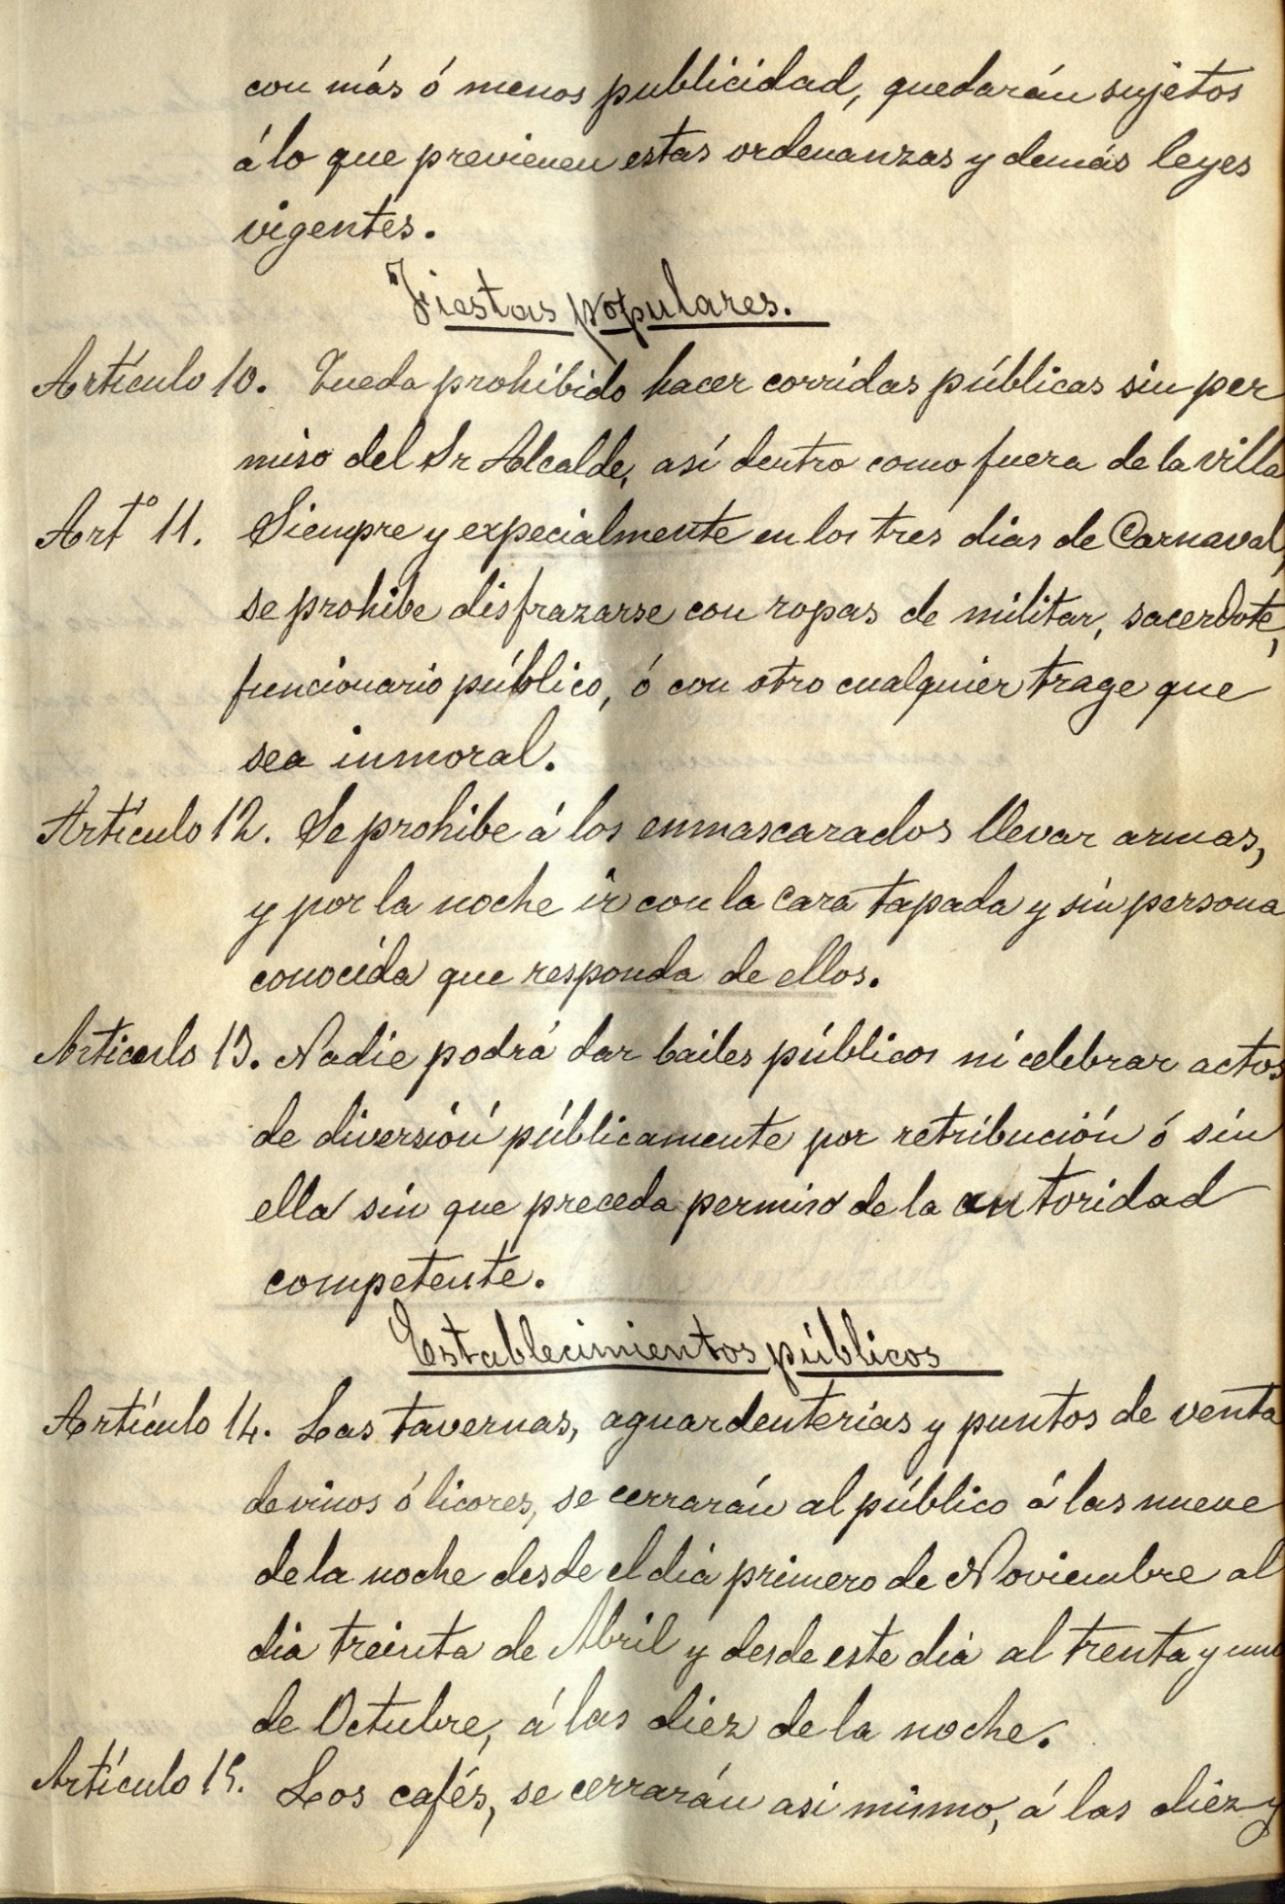 con más ó menos publicidad, quedarán sujetos
á lo que previenen estas ordenanzas y demás leyes
vigentes.
Fiestas populares.
Artículo 10. Queda prohibido hacer corridas públicas sin per
miso del Sr Alcalde, así dentro como fuera de la villa
Artº 11. Siempre y expecialmente en los tres dias de Carnaval,
se prohibe disfrazarse con ropas de militar, sacerdote,
funcionario público, ó con otro cualquier trage que
sea inmoral.
Artículo 12. Se prohibe á los enmascarados llevar armas,
y por la noche ir con la cara tapada y sin persona
conocida que responda de ellos.
Articulo 13. Nadie podrá dar bailes públicos ni celebrar actos
de diversión públicamente por retribución ó sin
ella sin que preceda permiso de la autoridad
competente.
Establecimientos públicos
Artículo 14. Las tavernas, aguardenterias y puntos de venta
de vinos ó licores, se cerrarán al público á las nueve
de la noche desde el dia primero de Noviembre al
dia treinta de Abril y desde este dia al trenta y uno
de Octubre, á las diez de la noche.
Artículo 15. Los cafés, se cerrarán asi mismo, á las diez y